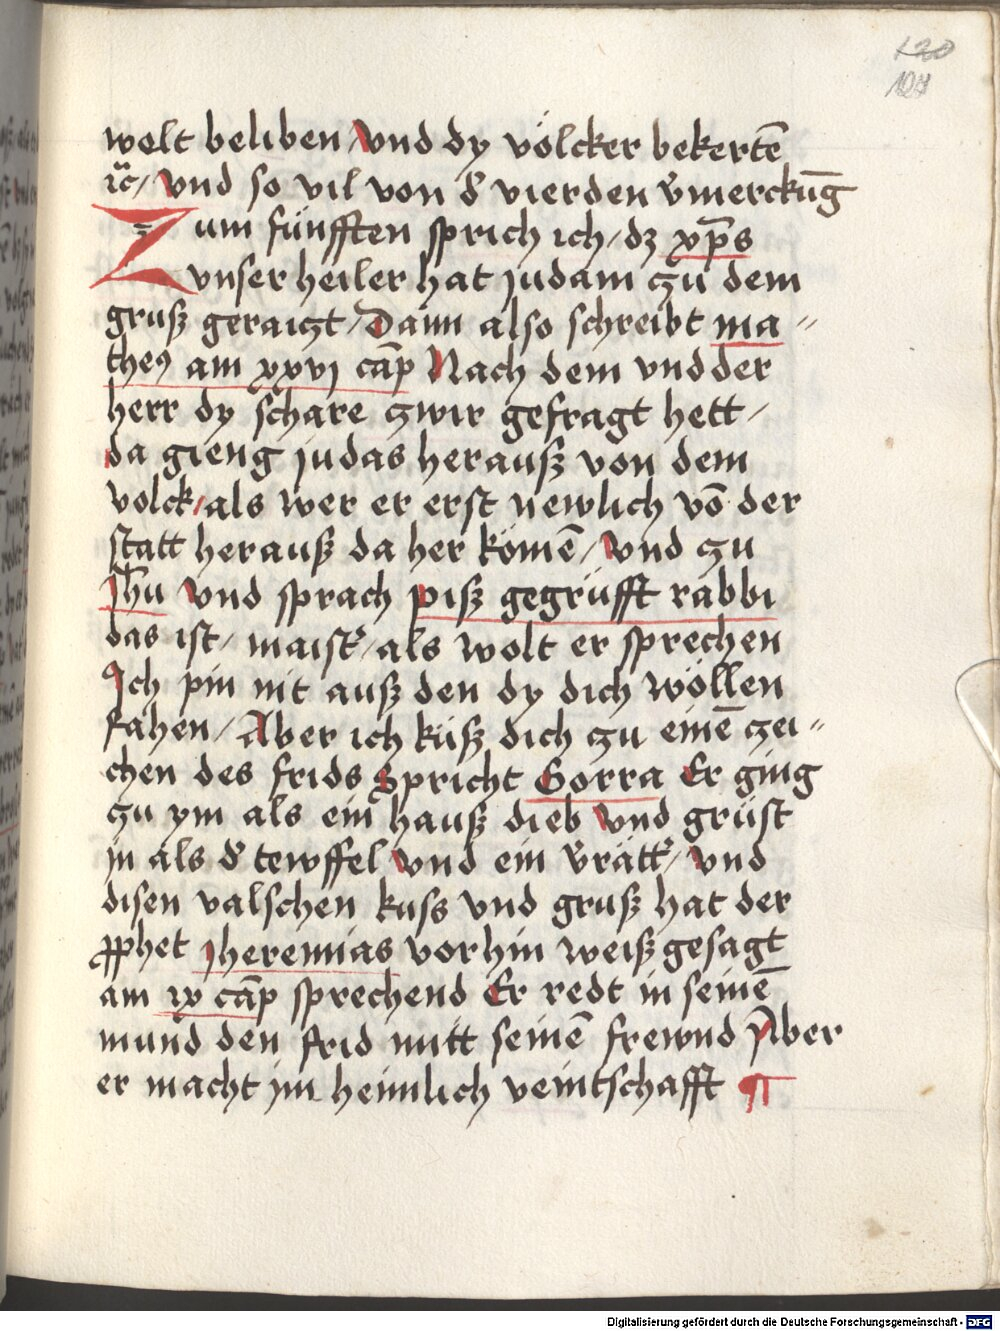 120
107
welt beliben / vnd dy völcker bekertē
ꝛc̄ / vnd so vil von d̓ vierden v̓merckūg
Zum fünfften sprich ich / dz xp̄s
vnser heiler hat judam zů dem
gruß geraiczt / Dann also schreibt ma〃
theꝰ am xxvj cap̄ Nach dem vnd der
herr dy schare zwir gefragt hett /
da gieng judas herauß von dem
volck / als wer er erst newlich vō der
statt herauß da her kömē / vnd zu
Jh̄u vnd sprach piß gegrüsst rabbi
das ist / maist̓ / als wolt er sprechen
Ich pin nit auß den dy dich wöllen
fahen / Aber ich küß dich zu einē zei〃
chen des frids Spricht Gorra Er ging
zu ym als ein hauß dieb vnd grüst
jn als d̓ tewffel vnd ein v̓rätt̓ / vnd
disen valschen kuss vnd gruß hat der
ꝓphet Jheremias vorhin weißgesagt
am ix cap̄ sprechend Er redt in seinē
mund den frid mitt seinē frewnd Aber
er macht jm heimlich veintschafft ¶
Digitalisierung gefördert durch die Deutsche Forschungsgemeinschaft - DFG